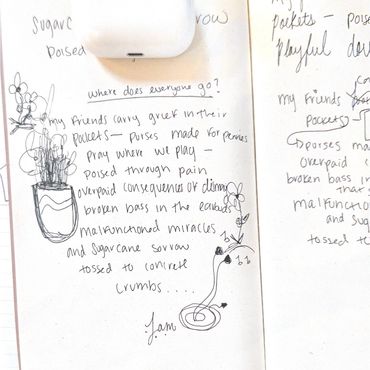 sugarc
row
poised
where does everyone go?
my friends carry grief in their
pockets — purses made for pennies
pray where we play —
poised through pain
overpaid consequences of
broken bass in the earbuds
malfunctioned miracles
and sugarcane sorrow
tossed to concrete
crumbs . . . . .
Jam
pockets — poise
playful
my friends
pockets
purses ma
overpaid c
broken bass in
that
malfunction
and sug
tossed t